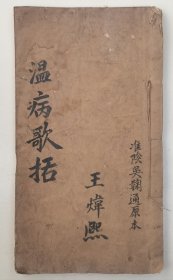 淮陰吳鞠通原本
温病歌括
王煒熙